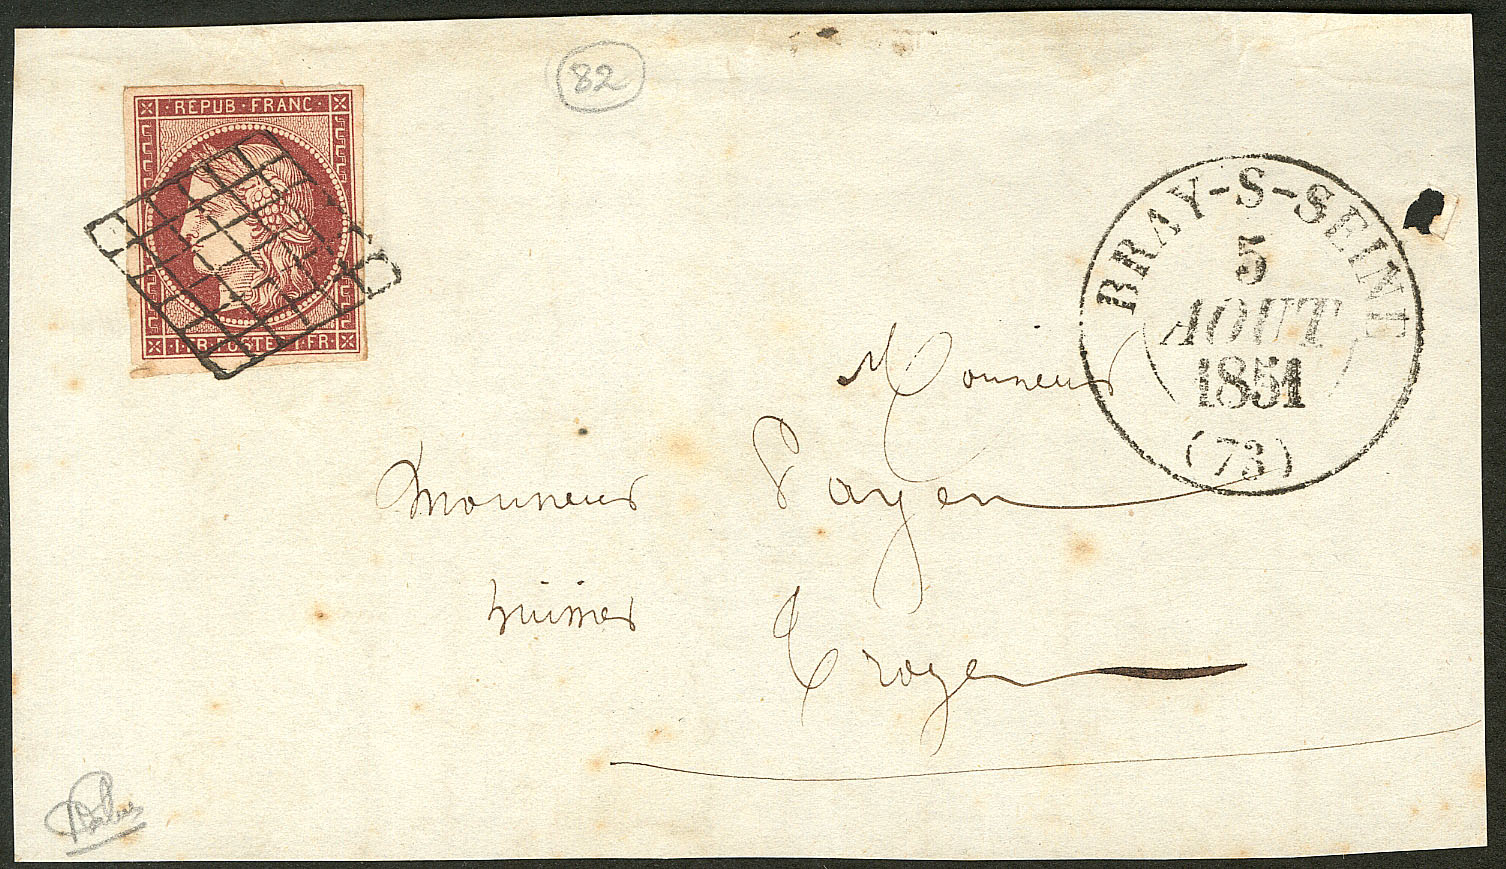 82
REPUB·FRANC·
1·FR·POSTES·1·FR·
BRAY-S-SEINE
5
AOUT
1851
(73)
Monsieur
Monsieur Payen
huissier
Troyes